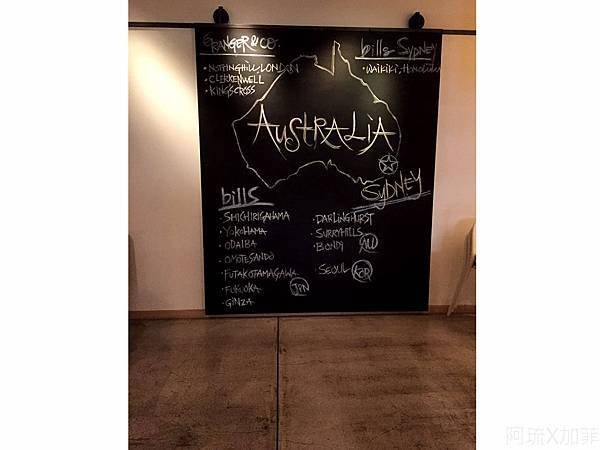 GRANGER & CO.
· NOTHINGHILL, LONDON
· CLERKENWELL
· KINGSCROSS
bills SYDNEY
· WAIKIKI, HONOLULU
AUSTRALIA
SYDNEY
bills
· SHICHIRIGAHAMA
· YOKOHAMA
· ODAIBA
· OMOTESANDO
· FUTAKOTAMAGAWA
· FUKUOKA
· GINZA
JPN
· DARLINGHURST
· SURRYHILLS
· BONDI
AU
· SEOUL
KOR
阿琉X加菲